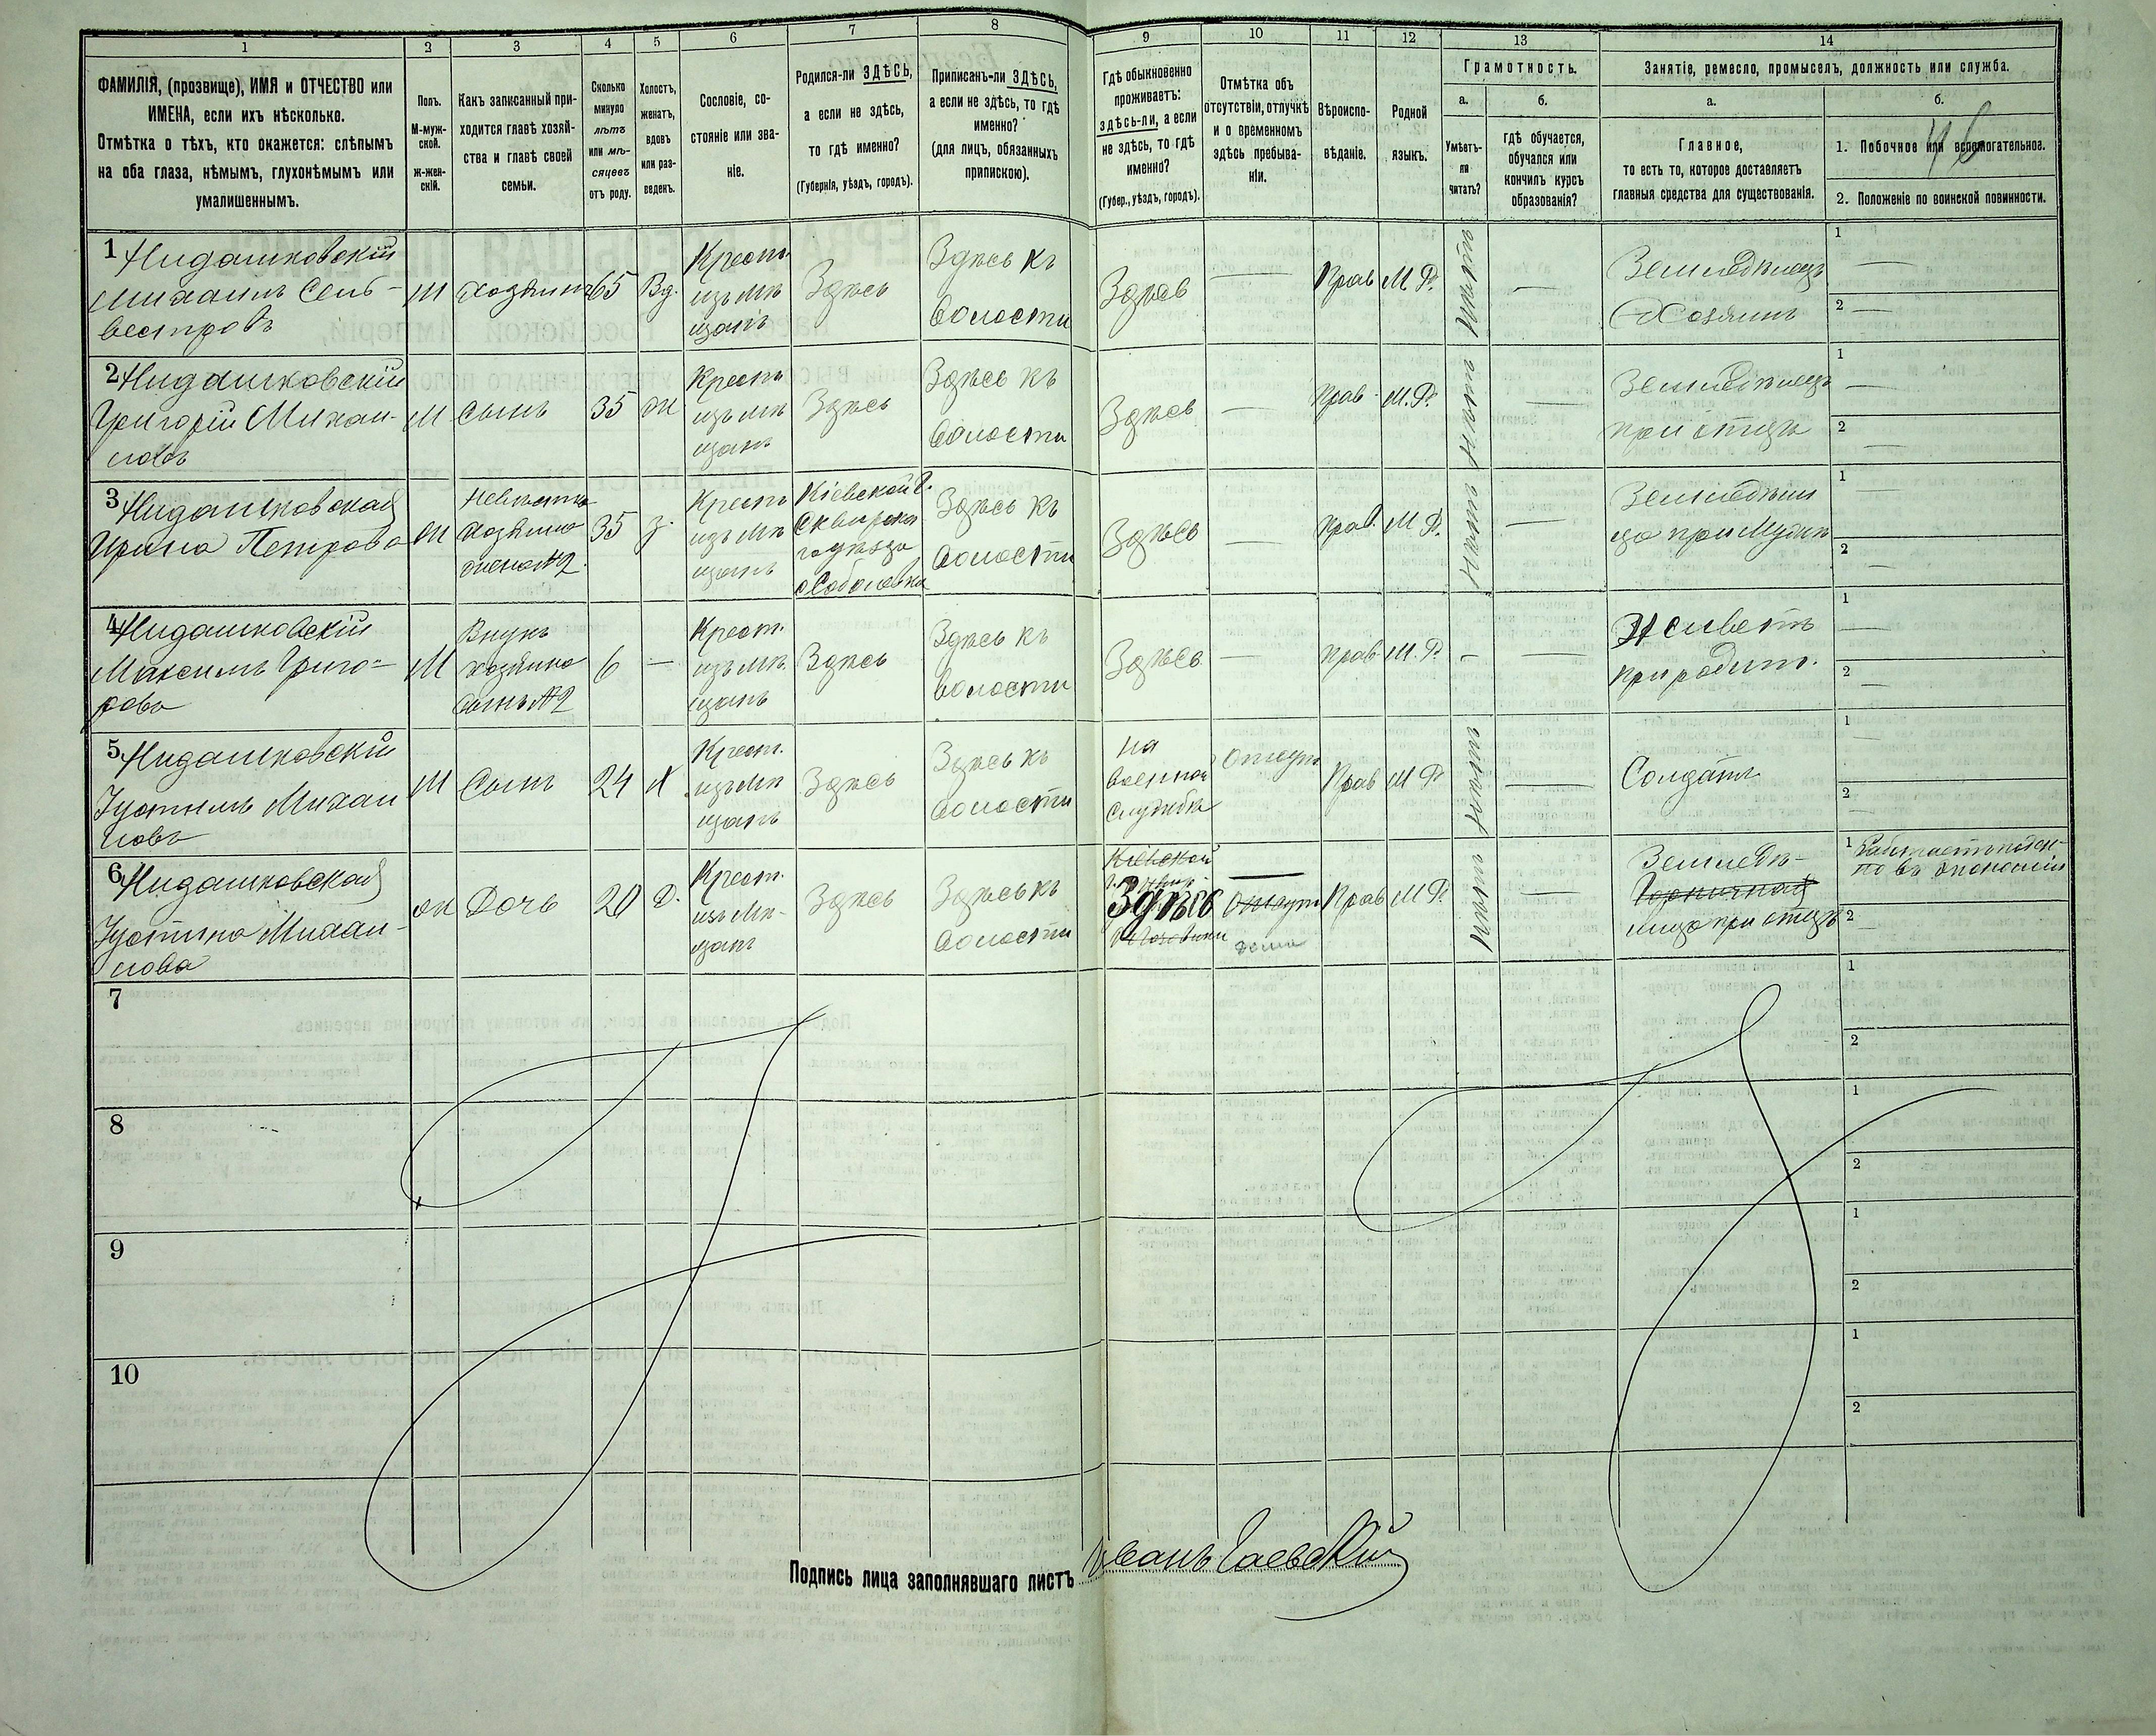 1 2 3 4 5 6 7 8 9 10 11 12 13 14
ФАМИЛІЯ, (прозвище), ИМЯ и ОТЧЕСТВО или
ИМЕНА, если ихъ нѣсколько.
Отмѣтка о тѣхъ, кто окажется: слѣпымъ
на оба глаза, нѣмымъ, глухонѣмымъ или
умалишеннымъ.
Полъ.
М-муж-
ской.
ж-жен-
скій.
Какъ записанный при-
ходится главѣ хозяй-
ства и главѣ своей
семьи.
Сколько
минуло
лѣтъ
или мѣ-
сяцевъ
отъ роду.
Холостъ,
женатъ,
вдовъ
или раз-
веденъ.
Сословіе, со-
стояніе или зва-
ніе.
Родился-ли ЗДѢСЬ,
а если не здѣсь,
то гдѣ именно?
(Губернія, уѣздъ, городъ).
Приписанъ-ли ЗДѢСЬ,
а если не здѣсь, то гдѣ
именно?
(для лицъ, обязанныхъ
припискою).
Гдѣ обыкновенно
проживаетъ:
здѣсь-ли, а если
не здѣсь, то гдѣ
именно?
(Губер., уѣздъ, городъ).
Отмѣтка объ
отсутствіи, отлучкѣ
и о временномъ
здѣсь пребыва-
ніи.
Вѣроиспо-
вѣданіе.
Родной
языкъ.
Грамотность.
а.
Умѣетъ-
ли
читать?
б.
гдѣ обучается,
обучался или
кончилъ курсъ
образованія?
Занятіе, ремесло, промыселъ, должность или служба.
а.
Главное,
то есть то, которое доставляетъ
главныя средства для существованія.
б.
1. Побочное или вспомогательное.
2. Положеніе по воинской повинности.
1
Нидашковскій
Михаилъ Сель-
вестровъ
М
хозяинъ
65
Вд.
Крест.
изъ мѣ
щанъ
Здѣсь
Здѣсь къ
волости
Здѣсь
—
Прав
М. Р.
нѣтъ
—
Земледѣлецъ
Хозяинъ
1 —
2 —
2
Нидашковскій
Григорій Михаи-
ловъ
М
сынъ
35
ж
Крест
изъ мѣ
щанъ
Здѣсь
Здѣсь къ
волости
Здѣсь
—
Прав.
М. Р.
нѣтъ
—
Земледѣлецъ
при отцѣ
1 —
2 —
3
Нидашковская
Ирина Петрова
ж
Невѣстка
хозяина
жена №2.
35
з.
Крест
изъ мѣ
щанъ
Кіевской г.
Сквирска
го уѣзда
с Соболевки
Здѣсь къ
волости
Здѣсь
—
Прав.
М Р.
нѣтъ
—
Земледѣли
ца при Мужѣ
1 —
2 —
4
Нидашковскій
Максимъ Григо-
ровъ
М
Внукъ
хозяина
сынъ №2
6
—
Крест.
изъ мѣ
щанъ
Здѣсь
Здѣсь къ
волости
Здѣсь
—
Прав
М. Р.
-
—
Живетъ
при родит.
1 —
2 —
5
Нидашковскій
Устимъ Михаи
ловъ
М
Сынъ
24
х
Крест.
изъ мѣ
щанъ
Здѣсь
Здѣсь къ
волости
На
военной
службѣ
Отсут
Прав
М Р
нѣтъ
—
Солдатъ
1 —
2 —
6
Нидашковская
Устина Михаи-
лова
ж
Дочь
20
д.
Крест.
изъ мѣ-
щанъ
Здѣсь
Здѣсь къ
волости
Кіевской
Здѣсь
—
Отсут
дома
Прав
М Р.
нѣтъ
—
Земледѣ-
Горничная
лица при отцѣ
1 Работаетъ поден-
но въ экономіи
2 —
7
1
2
8
1
2
9
1
2
10
1
2
Подпись лица заполнявшаго листъ Иванъ Гаевскій